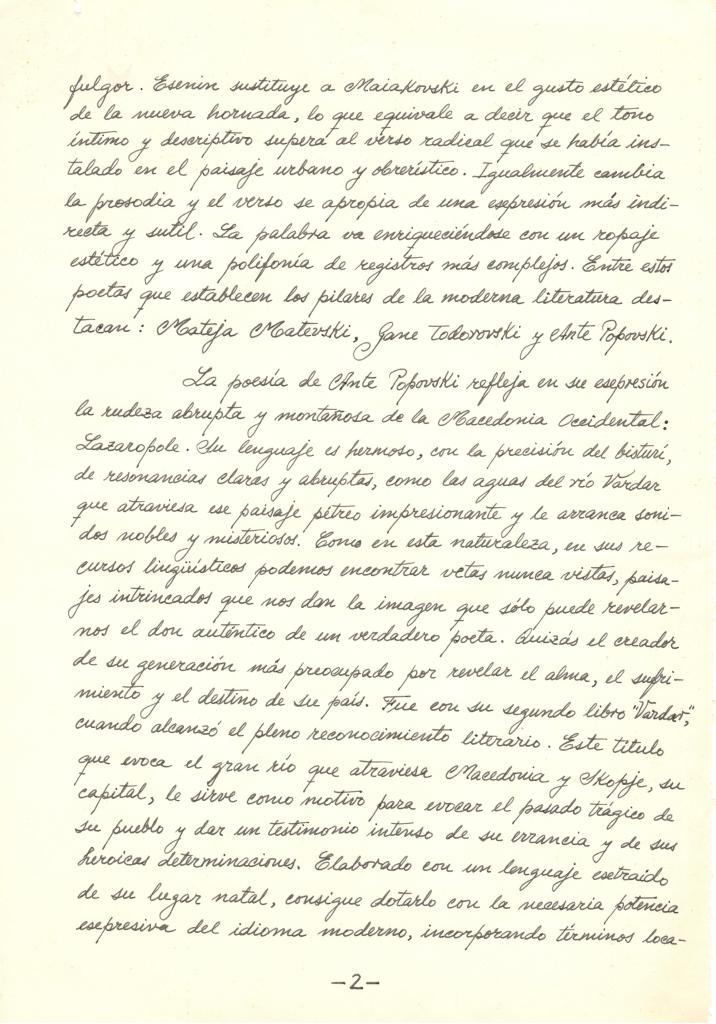 fulgor. Esenin sustituye a Maiakovski en el gusto estético
de la nueva hornada, lo que equivale a decir que el tono
íntimo y descriptivo supera al verso radical que se había ins-
talado en el paisaje urbano y obrerístico. Igualmente cambia
la prosodia y el verso se apropia de una esepresión más indi-
recta y sutil. La palabra va enriqueciéndose con un ropaje
estético y una polifonía de registros más complejos. Entre estos
poetas que establecen los pilares de la moderna literatura des-
tacan: Mateja Matevski, Gane Todorovski y Ante Popovski.
La poesía de Ante Popovski refleja en su esepresión
la rudeza abrupta y montañosa de la Macedonia Occidental:
Lazaropole. Su lenguaje es hermoso, con la precisión del bisturí,
de resonancias claras y abruptas, como las aguas del río Vardar
que atraviesa ese paisaje pétreo impresionante y le arranca soni-
dos nobles y misteriosos. Como en esta naturaleza, en sus re-
cursos lingüísticos podemos encontrar vetas nunca vistas, paisa-
jes intrincados que nos dan la imagen que sólo puede revelar-
nos el don auténtico de un verdadero poeta. Quizás el creador
de su generación más preocupado por revelar el alma, el sufri-
miento y el destino de su país. Fue con su segundo libro "Vardar",
cuando alcanzó el pleno reconocimiento literario. Este título
que evoca el gran río que atraviesa Macedonia y Skopje, su
capital, le sirve como motivo para evocar el pasado trágico de
su pueblo y dar un testimonio intenso de su errancia y de sus
heroicas determinaciones. Elaborado con un lenguaje esetraido
de su lugar natal, consigue dotarlo con la necesaria potencia
esepresiva del idioma moderno, incorporando términos loca-
-2-